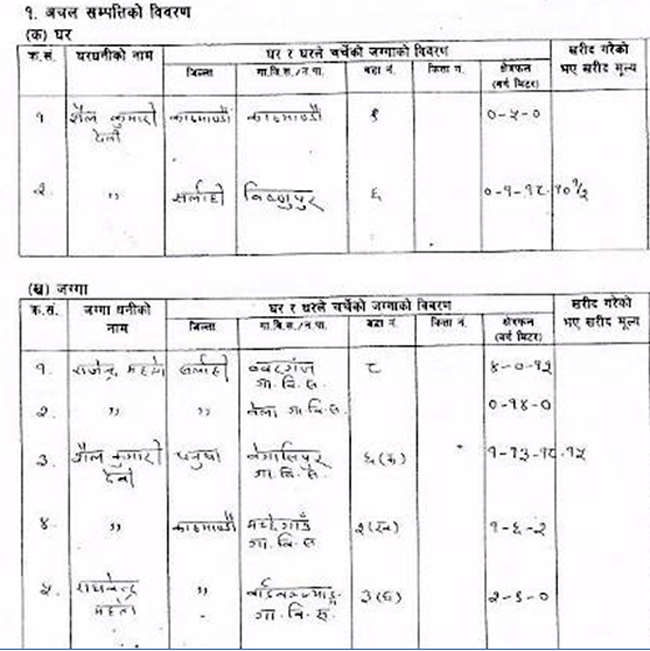 १. अचल सम्पत्तिको विवरण
(क) घर
क्र.सं. घरधनीको नाम घर र घरले चर्चेको जग्गाको विवरण खरीद गरेको भए खरीद मूल्य
जिल्ला गा.वि.स./न.पा. वडा नं. कित्ता नं. क्षेत्रफल (वर्ग मिटर)
१ शैल कुमारी देवी काठमाण्डौ काठमाण्डौ १ ०-५-०
२. ,, सर्लाही विष्णुपुर ६ ०-१-१८
(ख) जग्गा
क्र.सं. जग्गा धनीको नाम घर र घरले चर्चेको जग्गाको विवरण खरीद गरेको भए खरीद मूल्य
जिल्ला गा.वि.स./न.पा. वडा नं. कित्ता नं. क्षेत्रफल (वर्ग मिटर)
१. राजेन्द्र महतो सर्लाही गा.वि.स. ८ ४-०-१५
२. ,, ,, गा.वि.स. ०-१४-०
३. शैल कुमारी देवी धनुषा गा.वि.स. ६(क) १-१३-१८
४ ,, काठमाण्डौ गा.वि.स. २(ख) १-६-२
५. महतो ,, गा.वि.स. २-६-०